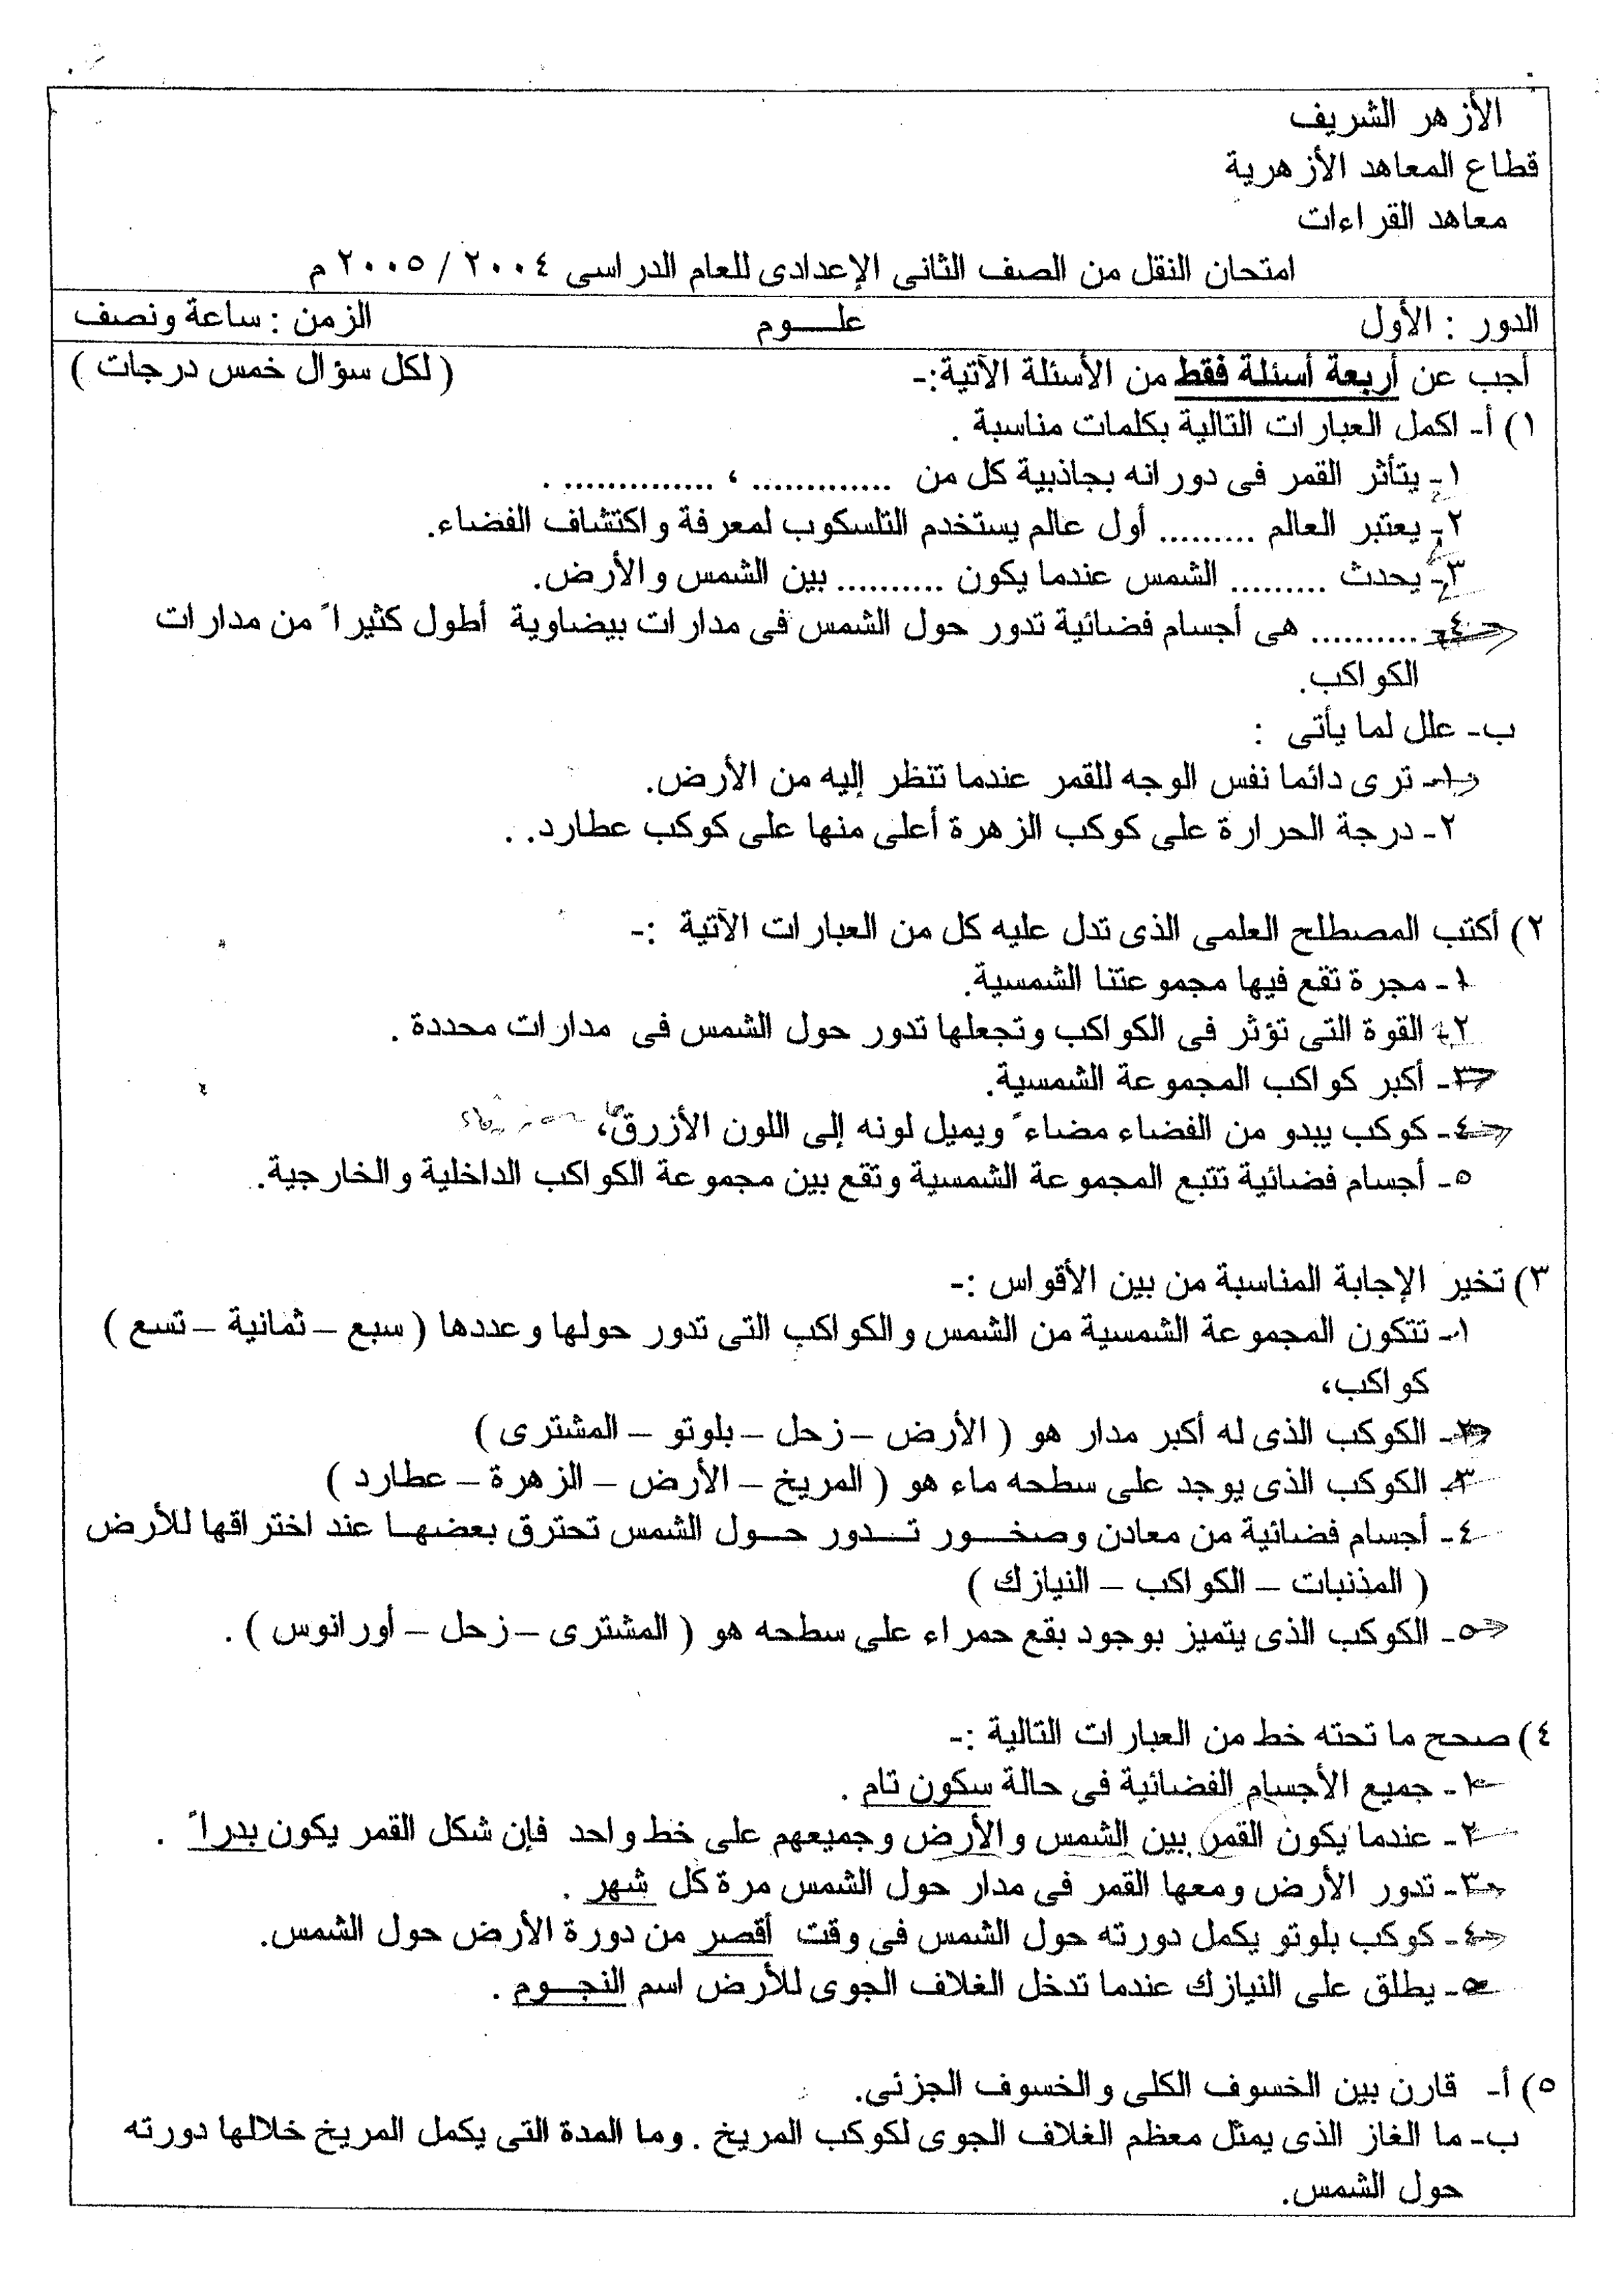 الأزهر الشريف
قطاع المعاهد الأزهرية
معاهد القراءات
امتحان النقل من الصف الثانى الإعدادى للعام الدراسى ٢٠٠٤ / ٢٠٠٥ م
الدور : الأول علـــوم الزمن : ساعة ونصف
أجب عن أربعة أسئلة فقط من الأسئلة الآتية:- ( لكل سؤال خمس درجات )
١) أ- اكمل العبارات التالية بكلمات مناسبة .
١- يتأثر القمر فى دورانه بجاذبية كل من ............. ، .............. .
٢- يعتبر العالم ......... أول عالم يستخدم التلسكوب لمعرفة واكتشاف الفضاء.
٣- يحدث ......... الشمس عندما يكون .......... بين الشمس والأرض.
٤- .......... هى أجسام فضائية تدور حول الشمس فى مدارات بيضاوية أطول كثيراً من مدارات
الكواكب.
ب- علل لما يأتى :
١- ترى دائما نفس الوجه للقمر عندما تنظر إليه من الأرض.
٢- درجة الحرارة على كوكب الزهرة أعلى منها على كوكب عطارد. .
٢) أكتب المصطلح العلمى الذى تدل عليه كل من العبارات الآتية :-
١- مجرة تقع فيها مجموعتنا الشمسية.
٢- القوة التى تؤثر فى الكواكب وتجعلها تدور حول الشمس فى مدارات محددة .
٣- أكبر كواكب المجموعة الشمسية.
٤- كوكب يبدو من الفضاء مضاءً ويميل لونه إلى اللون الأزرق،
٥- أجسام فضائية تتبع المجموعة الشمسية وتقع بين مجموعة الكواكب الداخلية والخارجية.
٣) تخير الإجابة المناسبة من بين الأقواس :-
١- تتكون المجموعة الشمسية من الشمس والكواكب التى تدور حولها وعددها ( سبع – ثمانية – تسع )
كواكب،
٢- الكوكب الذى له أكبر مدار هو ( الأرض – زحل – بلوتو – المشترى )
٣- الكوكب الذى يوجد على سطحه ماء هو ( المريخ – الأرض – الزهرة – عطارد )
٤- أجسام فضائية من معادن وصخـــور تـــدور حـــول الشمس تحترق بعضهـا عند اختراقها للأرض
( المذنبات – الكواكب – النيازك )
٥- الكوكب الذى يتميز بوجود بقع حمراء على سطحه هو ( المشترى – زحل – أورانوس ) .
٤) صحح ما تحته خط من العبارات التالية :-
١- جميع الأجسام الفضائية فى حالة سكون تام .
٢- عندما يكون القمر بين الشمس والأرض وجميعهم على خط واحد فإن شكل القمر يكون بدراً .
٣- تدور الأرض ومعها القمر فى مدار حول الشمس مرة كل شهر .
٤- كوكب بلوتو يكمل دورته حول الشمس فى وقت أقصر من دورة الأرض حول الشمس.
٥- يطلق على النيازك عندما تدخل الغلاف الجوى للأرض اسم النجـــوم .
٥) أ- قارن بين الخسوف الكلى والخسوف الجزئى.
ب- ما الغاز الذى يمثل معظم الغلاف الجوى لكوكب المريخ . وما المدة التى يكمل المريخ خلالها دورته
حول الشمس.